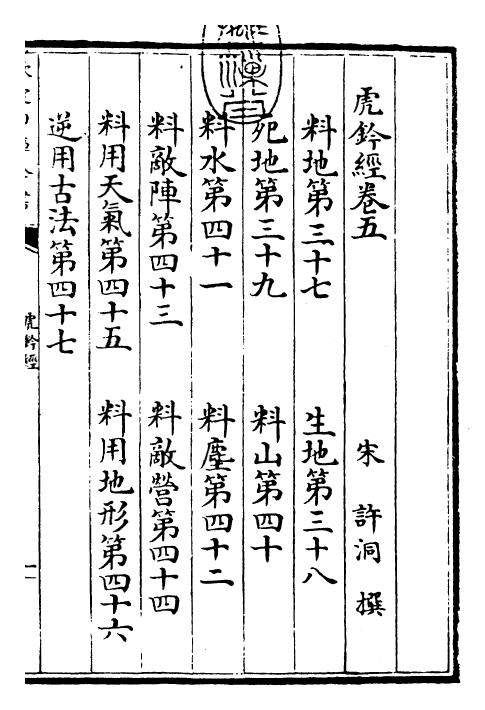 虎鈐經卷五
宋 許洞 撰
料地第三十七 生地第三十八
死地第三十九 料山第四十
料水第四十一 料塵第四十二
料敵陣第四十三 料敵營第四十四
料用天氣第四十五 料用地形第四十六
逆用古法第四十七
虎鈐經
一